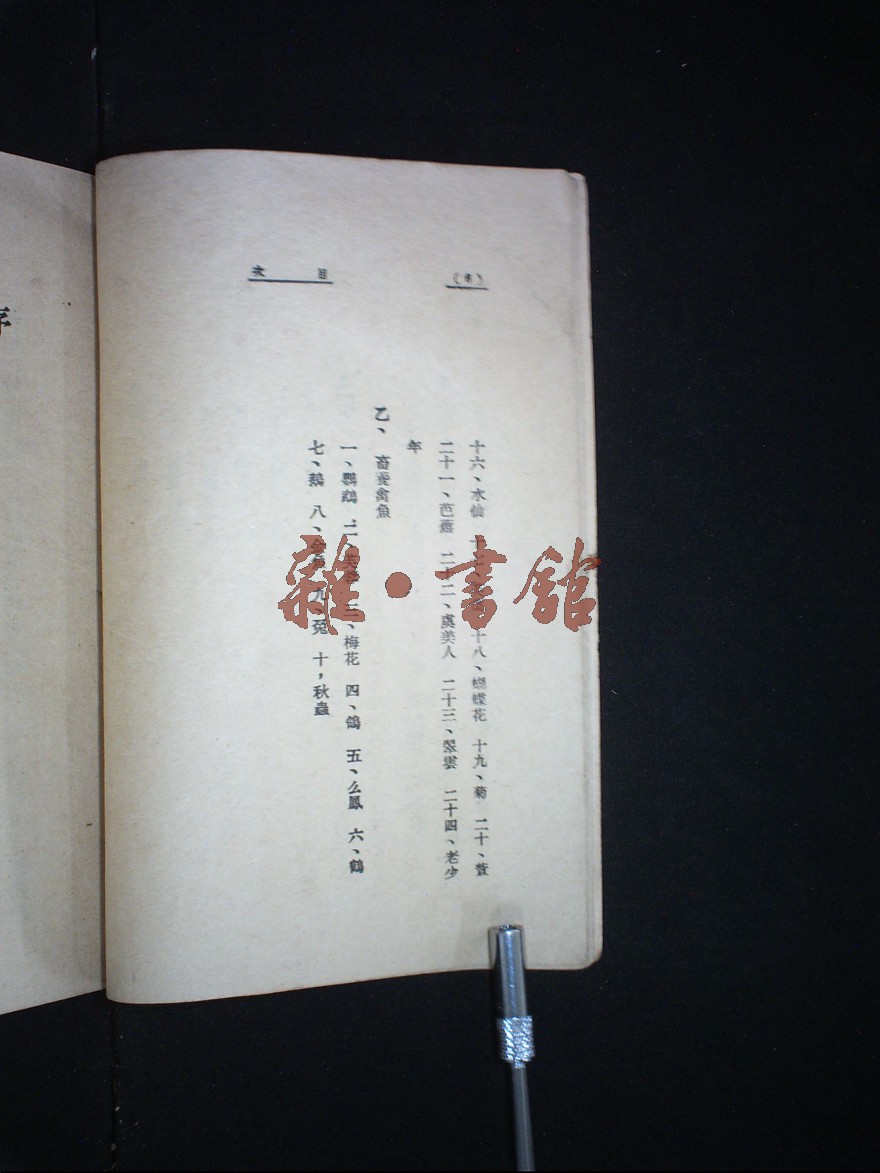 目 次
十六、水仙 十 十八、蝴蝶花 十九、菊 二十、萱
二十一、芭蕉 二十二、虞美人 二十三、翠雲 二十四、老少
年
乙、畜養禽魚
一、鸚鵡 二、 三、梅花 四、鴿 五、么鳳 六、鶴
七、鵝 八、金魚 九、兔 十，秋蟲
雜·書館